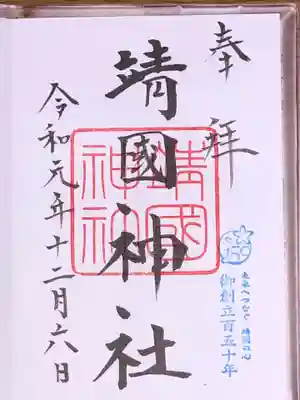 奉拝
未来へつむぐ 靖国の心
御創立百五十年
靖國神社
靖國神社
令和元年十二月六日